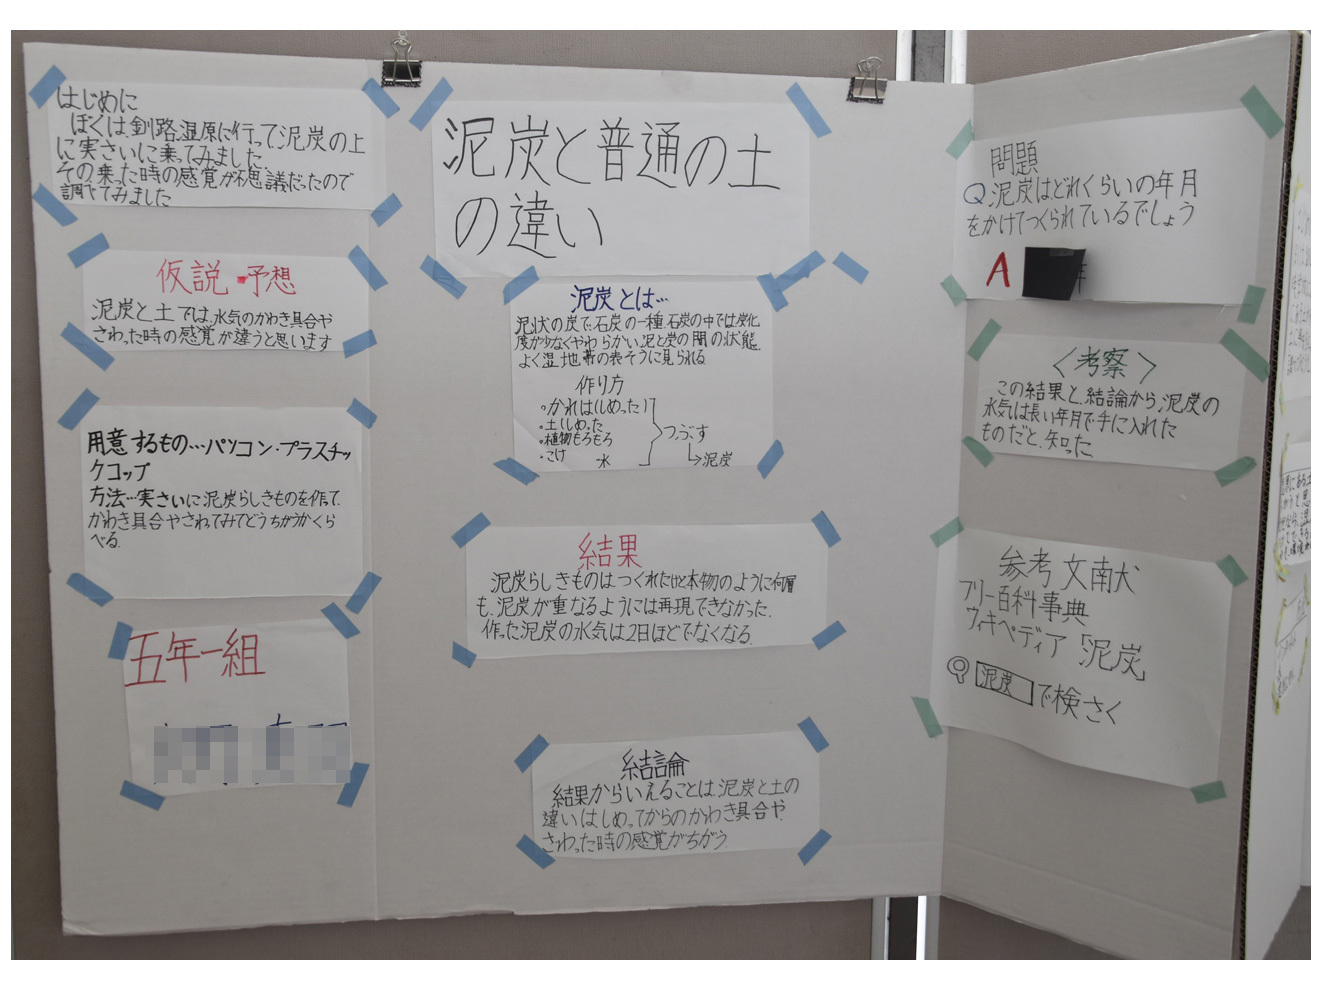 はじめに
ぼくは、釧路湿原に行って泥炭の上
に実さいに乗ってみました
その乗った時の感覚が不思議だったので
調べてみました
仮説・予想
泥炭と土では、水気のかわき具合や
さわった時の感覚が違うと思います
用意するもの…パソコン・プラスチッ
クコップ
方法…実さいに泥炭らしきものを作って、
かわき具合やさわってみてどうちがうかくら
べる。
五年一組
泥炭と普通の土
の違い
泥炭とは…
泥状の炭で、石炭の一種。石炭の中では炭化
度が少なくやわらかい。泥と炭の間の状態。
よく湿地帯の表そうに見られる。
作り方
・かれは(しめった)
・土(しめった
・植物もろもろ
・こけ
水
つぶす
→泥炭
結果
泥炭らしきものはつくれたけど本物のように何層
も、泥炭が重なるようには再現できなかった。
作った泥炭の水気は2日ほどでなくなる。
結論
結果からいえることは、泥炭と土の
違いはしめってからのかわき具合や、
さわった時の感覚がちがう。
問題
Q.泥炭はどれくらいの年月
をかけてつくられているでしょう
A
<考察>
この結果と、結論から、泥炭の
水気は長い年月で手に入れた
ものだと、知った
参考文献
フリー百科事典
ウィキペディア「泥炭」
泥炭 で検さく